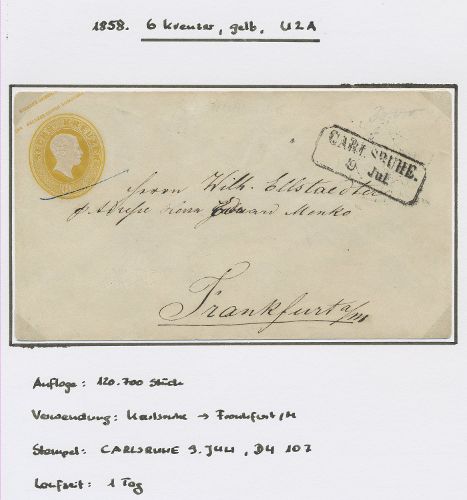 1858. 6 Kreuzer, gelb, U2A
SECHS KREUZER
CARLSRUHE.
9. Jul.
Herrn Wilh. Ellstaedter
p. Adresse Herrn Eduard Menko
Frankfurt a/M
Auflage: 120.700 Stück
Verwendung: Karlsruhe → Frankfurt/M
Stempel: CARLSRUHE 9. JULI, D4 107
Laufzeit: 1 Tag